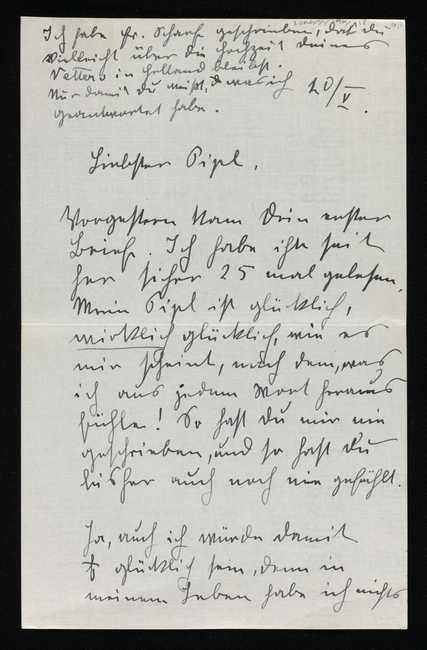 Ich habe Fr. Scharf geschrieben, daß du
vielleicht über die Hochzeit deines
Vetters in Holland bleibst.
Nur damit du weißt, was ich
geantwortet habe.
20/V.
Liebster Pipl,
Vorgestern kam Dein erster
Brief. Ich habe ihn seit
her sicher 25 mal gelesen.
Mein Pipl ist glücklich,
wirklich glücklich, wie es
mir scheint, nach dem, was
ich aus jedem Wort heraus
fühle! So hast du mir nie
geschrieben, und so hast du
bisher auch noch nie gefühlt.
Ja, auch ich würde damit
glücklich sein, denn in
meinem Leben habe ich nichts